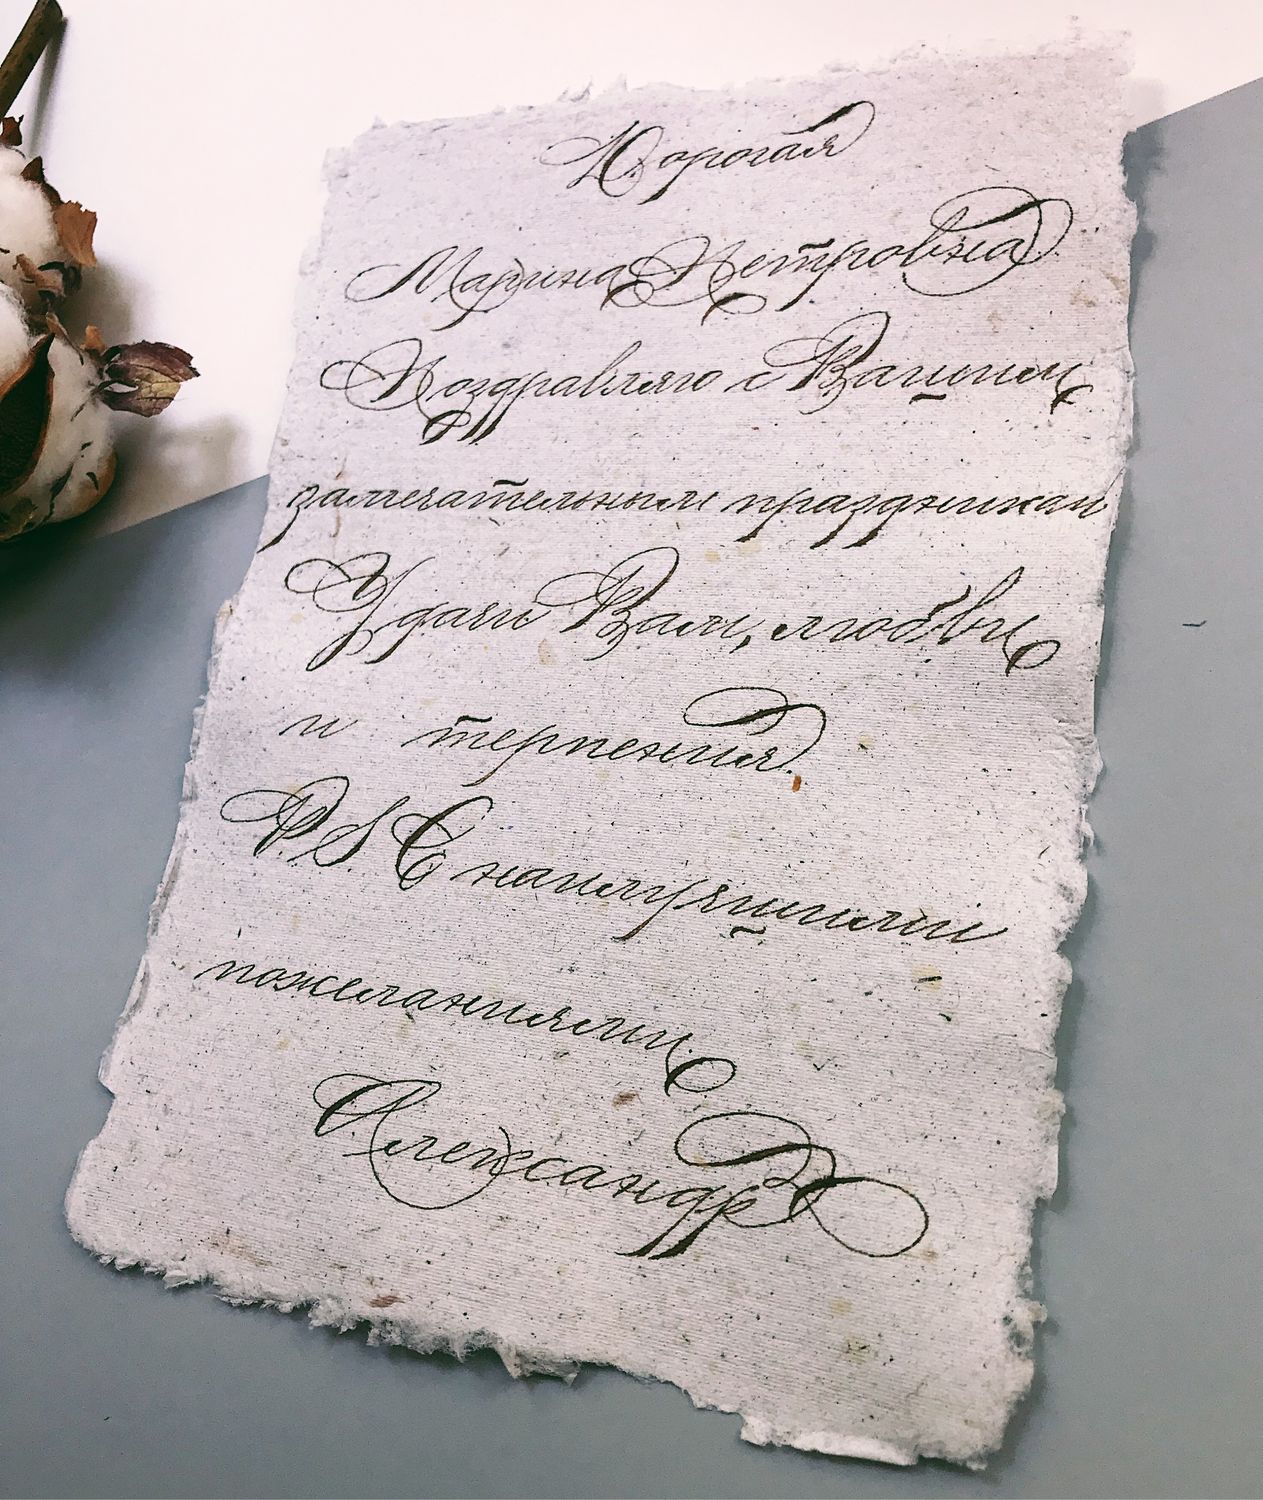 Дорогая
Марина Петровна
Поздравляю с Вашим
замечательным праздником
Удачи Вам, любви
и терпения.
P.S. С наилучшими
пожеланиями
Александр